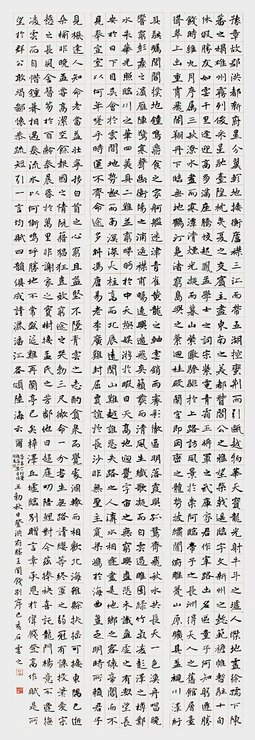 豫章故郡洪都新府星分翼軫地接衡廬襟三江而帶五湖控蠻荊而引甌越物華天寶龍光射牛斗之墟人傑地靈徐孺下陳
蕃之榻雄州霧列俊采星馳台隍枕夷夏之交賓主盡東南之美都督閻公之雅望棨戟遙臨宇文新州之懿範襜帷暫駐十旬
休暇勝友如雲千里逢迎高朋滿座騰蛟起鳳孟學士之詞宗紫電青霜王將軍之武庫家君作宰路出名區童子何知躬逢勝
餞時維九月序屬三秋潦水盡而寒潭清煙光凝而暮山紫儼驂騑於上路訪風景於崇阿臨帝子之長洲得仙人之舊館層
巒聳翠上出重霄飛閣翔丹下臨無地鶴汀鳧渚窮島嶼之縈迴桂殿蘭宮即岡巒之體勢披繡闥俯雕甍山原曠其盈視川澤紆
其駭矚閭閻撲地鐘鳴鼎食之家舸艦迷津青雀黃龍之舳雲銷雨霽彩徹區明落霞與孤鶩齊飛秋水共長天一色漁舟唱晚
響窮彭蠡之濱雁陣驚寒聲斷衡陽之浦遙襟甫暢逸興遄飛爽籟發而清風生纖歌凝而白雲遏睢園綠竹氣凌彭澤之樽鄴
水朱華光照臨川之筆四美具二難並窮睇眄於中天極娛遊於暇日天高地迥覺宇宙之無窮興盡悲來識盈虛之有數望長
安於日下目吳會於雲間地勢極而南溟深天柱高而北辰遠關山難越誰悲失路之人溝水相逢盡是他鄉之客懷帝閽而不
見奉宣室以何年嗟乎時運不齊命途多舛馮唐易老李廣難封屈賈誼於長沙非無聖主竄梁鴻於海曲豈乏明時所賴君子
見機達人知命老當益壯寧移白首之心窮且益堅不墜青雲之志酌貪泉而覺爽處涸轍而相歡北海雖賒扶搖可接東隅已逝
桑榆非晚孟嘗高潔空餘報國之情阮籍猖狂豈效窮途之哭勃三尺微命一介書生無路請纓等終軍之弱冠有懷投筆愛宗
慤之長風舍簪笏於百齡奉晨昏於萬里非謝家之寶樹接孟氏之芳鄰他日趨庭叨陪鯉對今茲捧袂喜託龍門楊意不逢撫
凌雲而自惜鍾期相遇奏流水以何慚嗚呼勝地不常盛筵難再蘭亭已矣梓澤丘墟臨別贈言幸承恩於偉餞登高作賦是所
望於群公敢竭鄙懷恭疏短引一言均賦四韻俱成請灑潘江各傾陸海云爾
王勃秋日登洪府滕王閣餞別序己亥石雲之